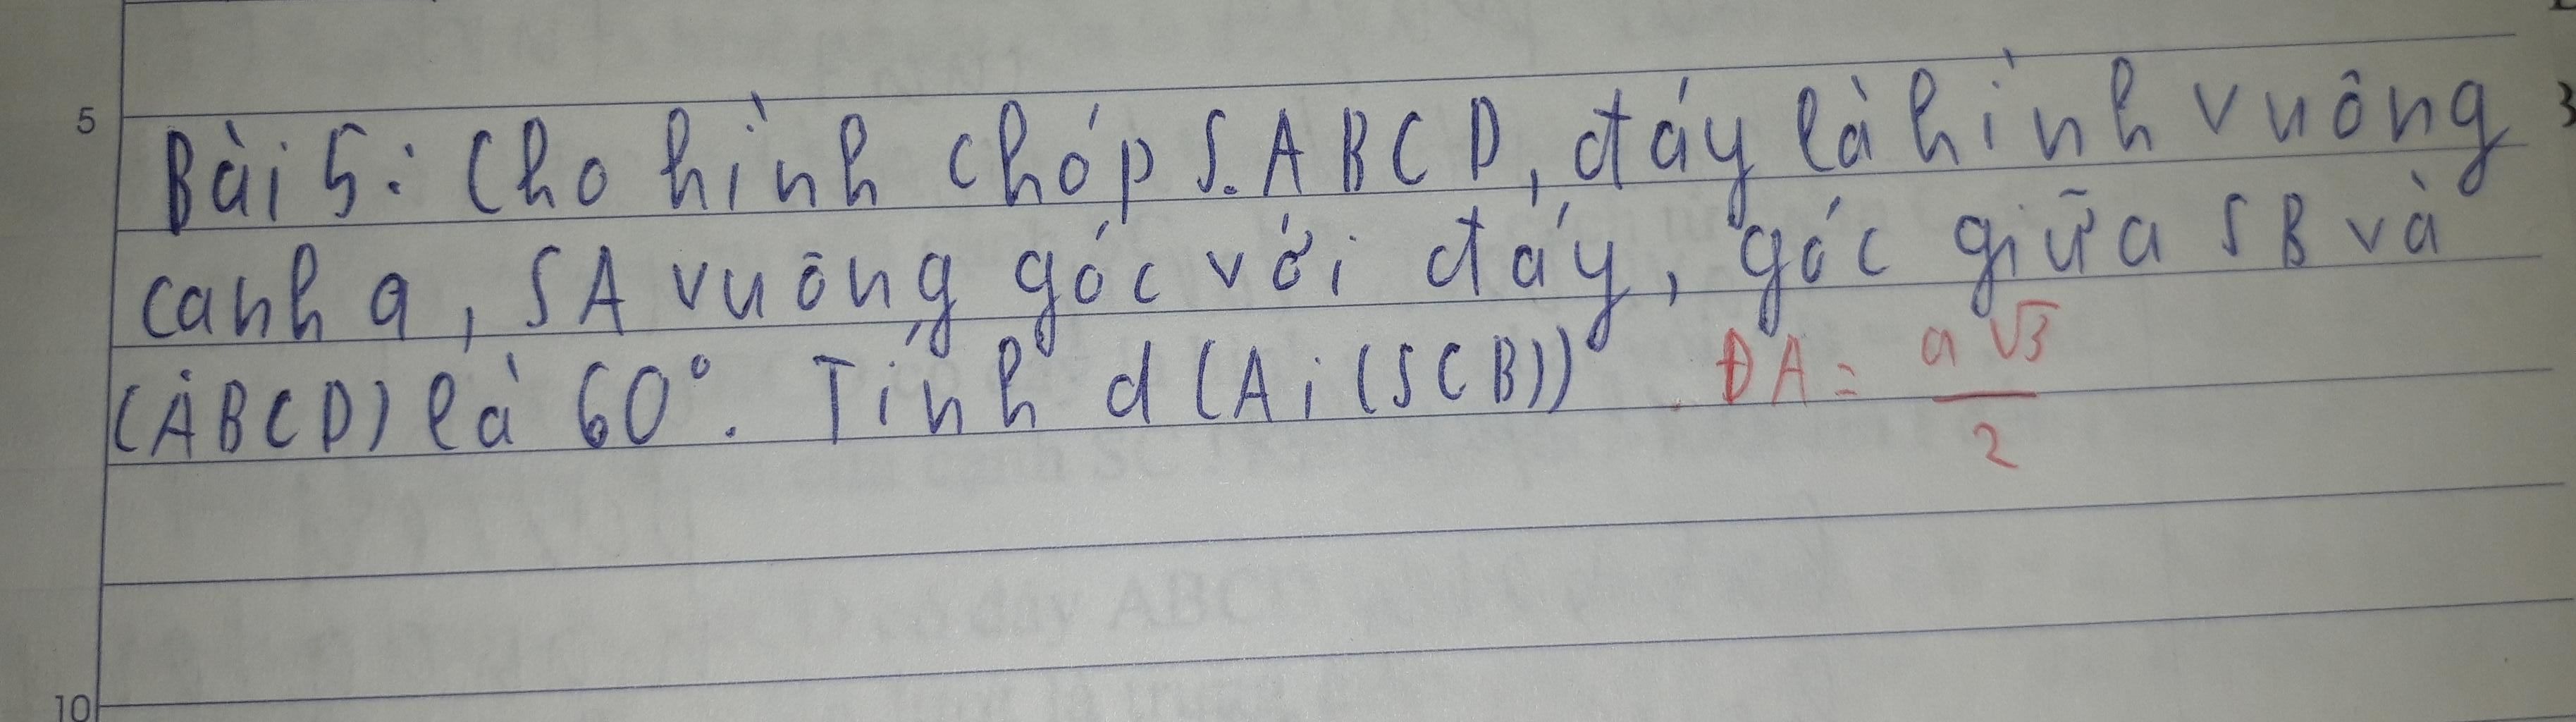 5
Bài 5: Cho hình chóp S.ABCD, đáy là hình vuông
canh a, SA vuông góc với đáy, góc giữa SB và
(ABCD) là 60°. Tính d(A;(SCB)). ĐA = a√3/2
10